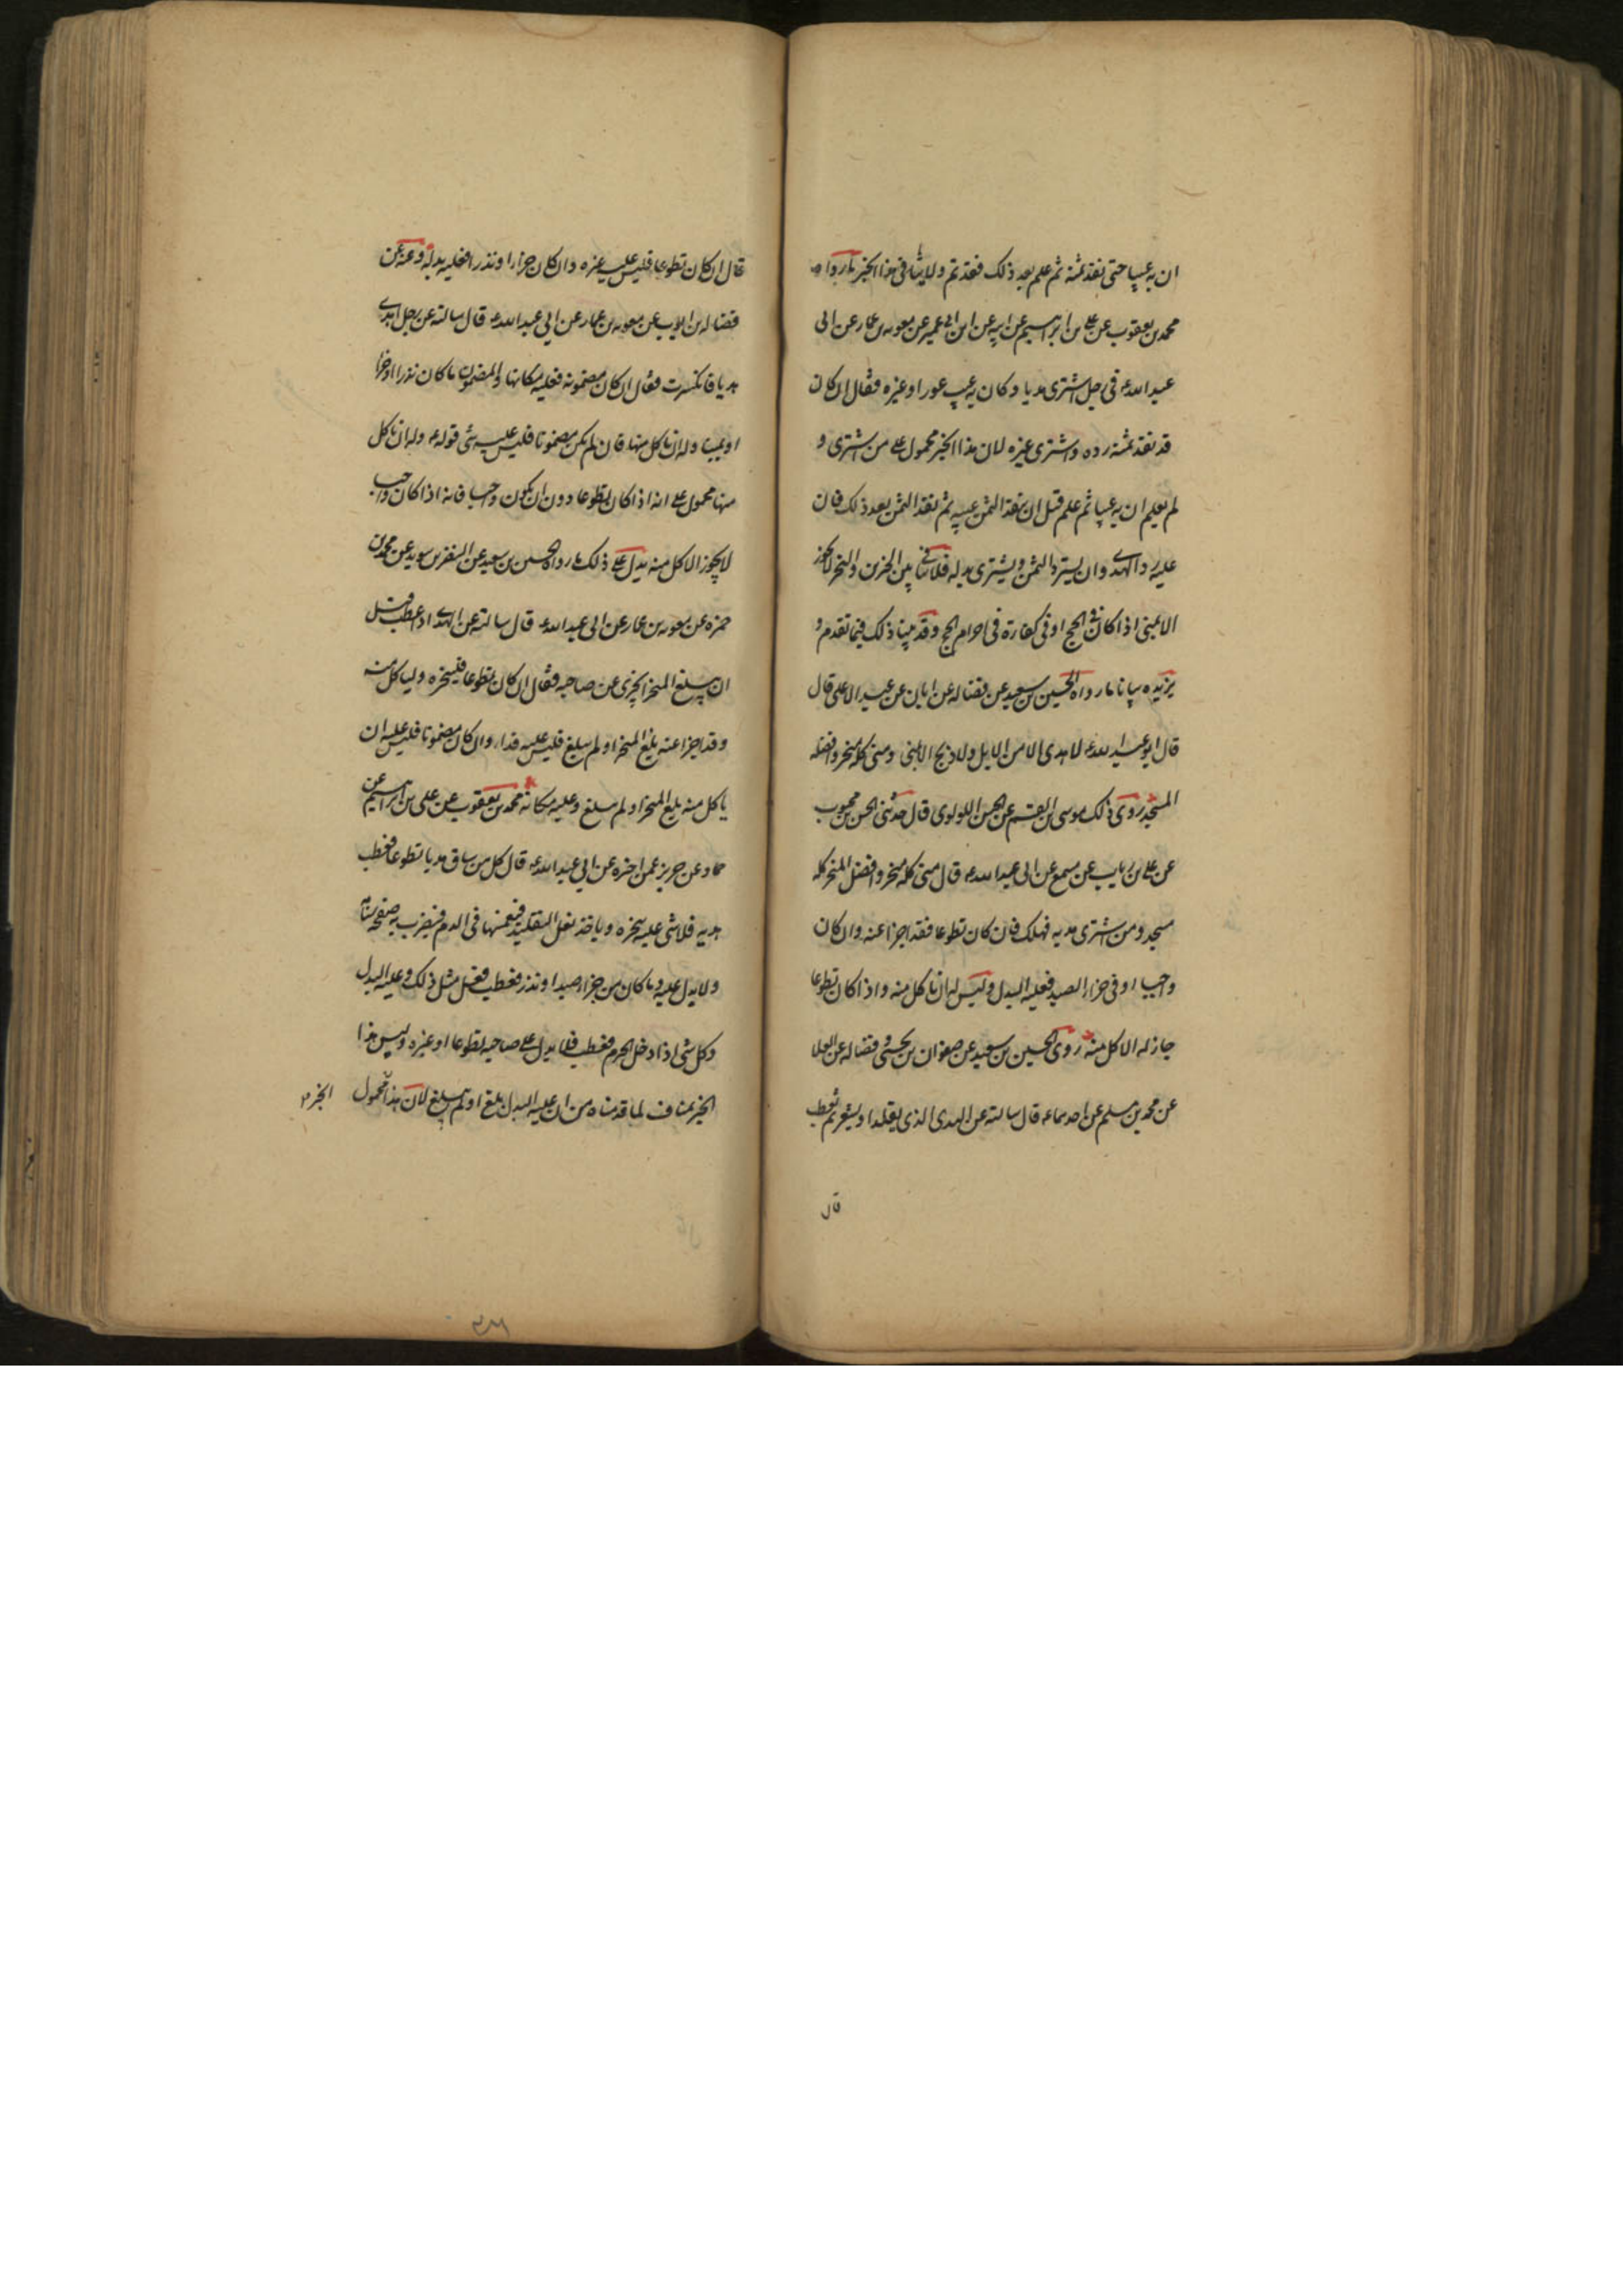 ان به عيبا حتى نقد ثمنه ثم علم بعد ذلك فقد تم ولا ينافى هذا الخبر ما رواه
محمد بن يعقوب عن على بن ابرهيم عن ابيه عن ابن ابى عمير عن معويه بن عمار عن ابى
عبد الله ع فى رجل اشترى هديا وكان به عيب عور او غيره فقال ان كان
قد نقد ثمنه رده واشترى غيره لان هذا الخبر محمول على من اشترى و
لم يعلم ان به عيبا ثم علم قبل ان ينقد الثمن عيبه ثم نقد الثمن بعد ذلك فان
عليه رد الهدى وان يسترد الثمن ويشترى بدله فلا تنافى بين الخبرين والنحر لا يجوز
الا بمنى اذا كان فى الحج او فى كفارة فى احرام الحج وقد بينا ذلك فيما تقدم و
يزيده بيانا ما رواه الحسين بن سعيد عن فضاله عن ابان عن عبد الاعلى قال
قال ابو عبد الله ع لا هدى الا من الابل ولا ذبح الا بمنى ومنى كله منحر وافضله
المسجد روى ذلك موسى بن القسم عن الحسن اللولوى قال حدثنى الحسن بن محبوب
عن على بن رياب عن مسمع عن ابى عبد الله ع قال منى كله منحر وافضل المنحر كله
مسجد ومن اشترى هديه فهلك فان كان تطوعا فقد اجزا عنه وان كان
واجبا او فى جزاء الصيد فعليه البدل وليس له ان ياكل منه واذا كان تطوعا
جاز له الاكل منه روى الحسين بن سعيد عن صفوان بن يحيى وفضاله عن العلا
عن محمد بن مسلم عن احدهما ع قال سالته عن الهدى الذى يقلد او يشعر ثم يعطب
قال
قال ان كان تطوعا فليس عليه غيره وان كان جزاء او نذرا فعليه بدله وعنه عن
فضاله بن ايوب عن معويه بن عمار عن ابى عبد الله ع قال سالته عن رجل اهدى
هديا فانكسرت فقال ان كان مضمونه فعليه مكانها والمضمون ما كان نذرا او جزا
او يمينا وله ان ياكل منها فان لم يكن مضمونا فليس عليه شى قوله ع وله ان ياكل
منها محمول على انه اذا كان تطوعا دون ان يكون واجبا فانه اذا كان واجب
لا يجوز الاكل منه يدل على ذلك ما رواه الحسين بن سعيد عن النضر بن سويد عن محمد بن
حمزه عن معويه بن عمار عن ابى عبد الله ع قال سالته عن الهدى اذا عطب قبل
ان يبلغ المنحر ايجزى عن صاحبه فقال ان كان تطوعا فلينحره ولياكل منه
وقد اجزا عنه بلغ المنحر او لم يبلغ فليس عليه فداء وان كان مضمونا فليس عليه ان
ياكل منه بلغ المنحر او لم يبلغ وعليه مكانه محمد بن يعقوب عن على بن ابراهيم عن
حماد عن حريز عمن اخبره عن ابى عبد الله ع قال كل من ساق هديا تطوعا فعطب
هديه فلا شى عليه ينحره وياخذ نعل التقليد فيغمسها فى الدم فيضرب به صفحه سنامه
ولا بدل عليه وما كان من جزاء صيد او نذر فعطب فعل مثل ذلك وعليه البدل
وكل شى اذا دخل الحرم فعطب فلا بدل على صاحبه تطوعا او غيره وليس هذا
الخبر بمناف لما قدمناه من ان عليه البدل بلغ او لم يبلغ لان هذا محمول
الخبر